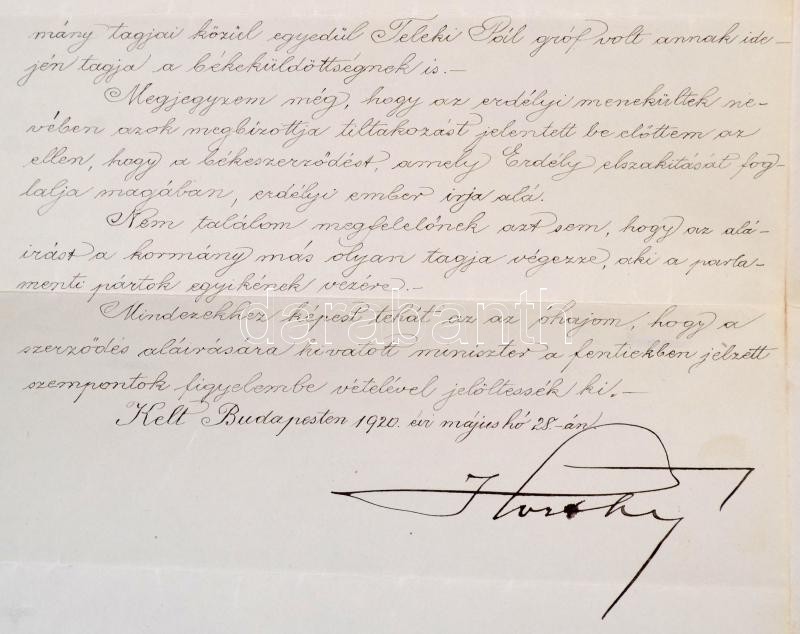 mány tagjai közül egyedül Teleki Pál gróf volt annak ide-
jén tagja a békeküldöttségnek is.-
Megjegyzem még, hogy az erdélyi menekültek ne-
vében azok megbizottja tiltakozást jelentett be előttem az
ellen, hogy a békeszerződést, amely Erdély elszakitását fog-
lalja magában, erdélyi ember irja alá.
Nem találom megfelelőnek azt sem, hogy az alá-
irást a kormány más olyan tagja végezze, aki a parla-
menti pártok egyikének vezére.-
Mindezekhez képest tehát az az óhajom, hogy a
szerződés aláirására hivatott miniszter a fentiekben jelzett
szempontok figyelembe vételével jelöltessék ki.-
Kelt Budapesten 1920. évi május hó 28.-án.
Horthy
darabanth